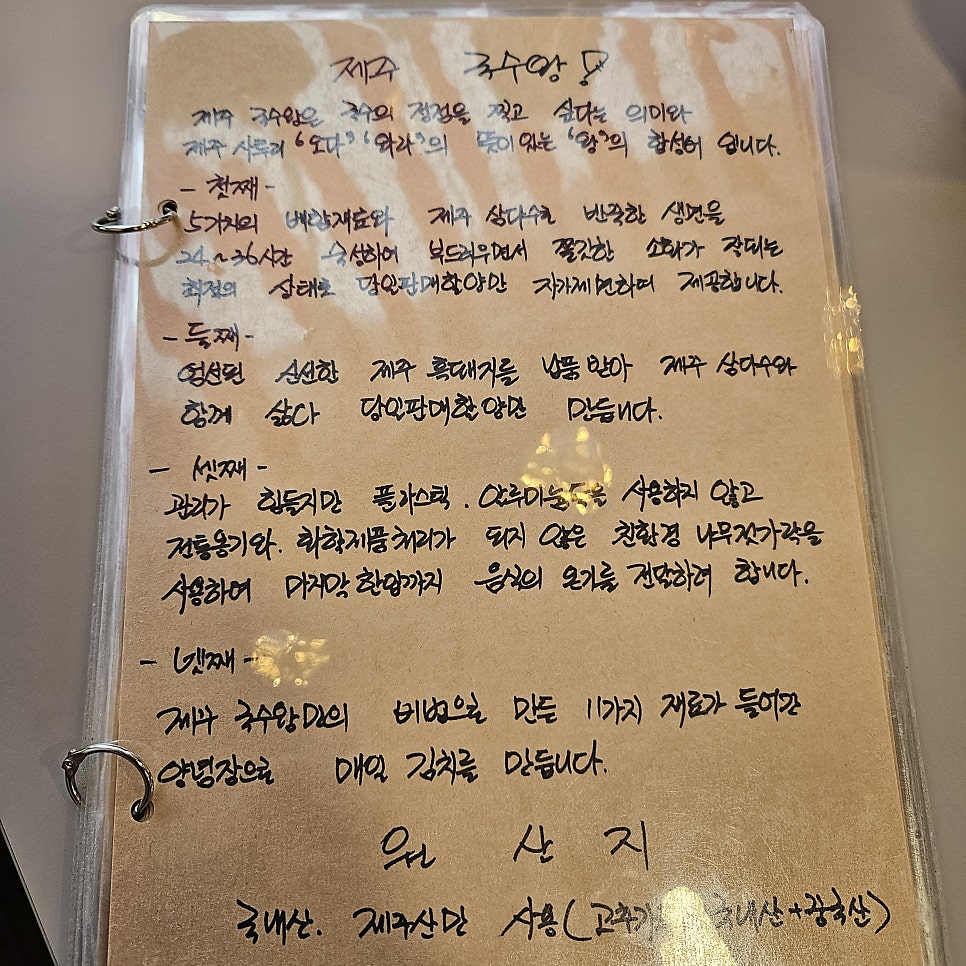 제주 국수왕!
제주 국수왕은 국수의 정점을 찍고 싶다는 의미와
제주 사투리 "오다" "와라"의 뜻이있는 "왕"의 합성어 입니다.
- 첫째 -
5가지의 배합재료와 제주 삼다수로 반죽한 생면을
24~36시간 숙성하여 부드러우면서 쫄깃한 소화가 잘되는
최적의 상태로 당일판매할양만 자가제면하며 제공합니다.
- 둘째 -
엄선된 신선한 제주 흑돼지를 납품 받아 제주 삼다수와
함께 삶다 당일판매할양만 만듭니다.
- 셋째 -
관리가 힘들지만 플라스틱. 사용하지 않고
전통옹기와. 화학제품처리가 되지 않은 친환경 나무젓가락을
사용하여 마지막 한입까지 음식의 온기를 전달하려 합니다.
- 넷째 -
제주 국수왕만의 비법으로 만든 11가지 재료가 들어간
양념장으로 매일 김치를 만듭니다.
원 산 지
국내산. 제주산만 사용( 국내산+중국산)